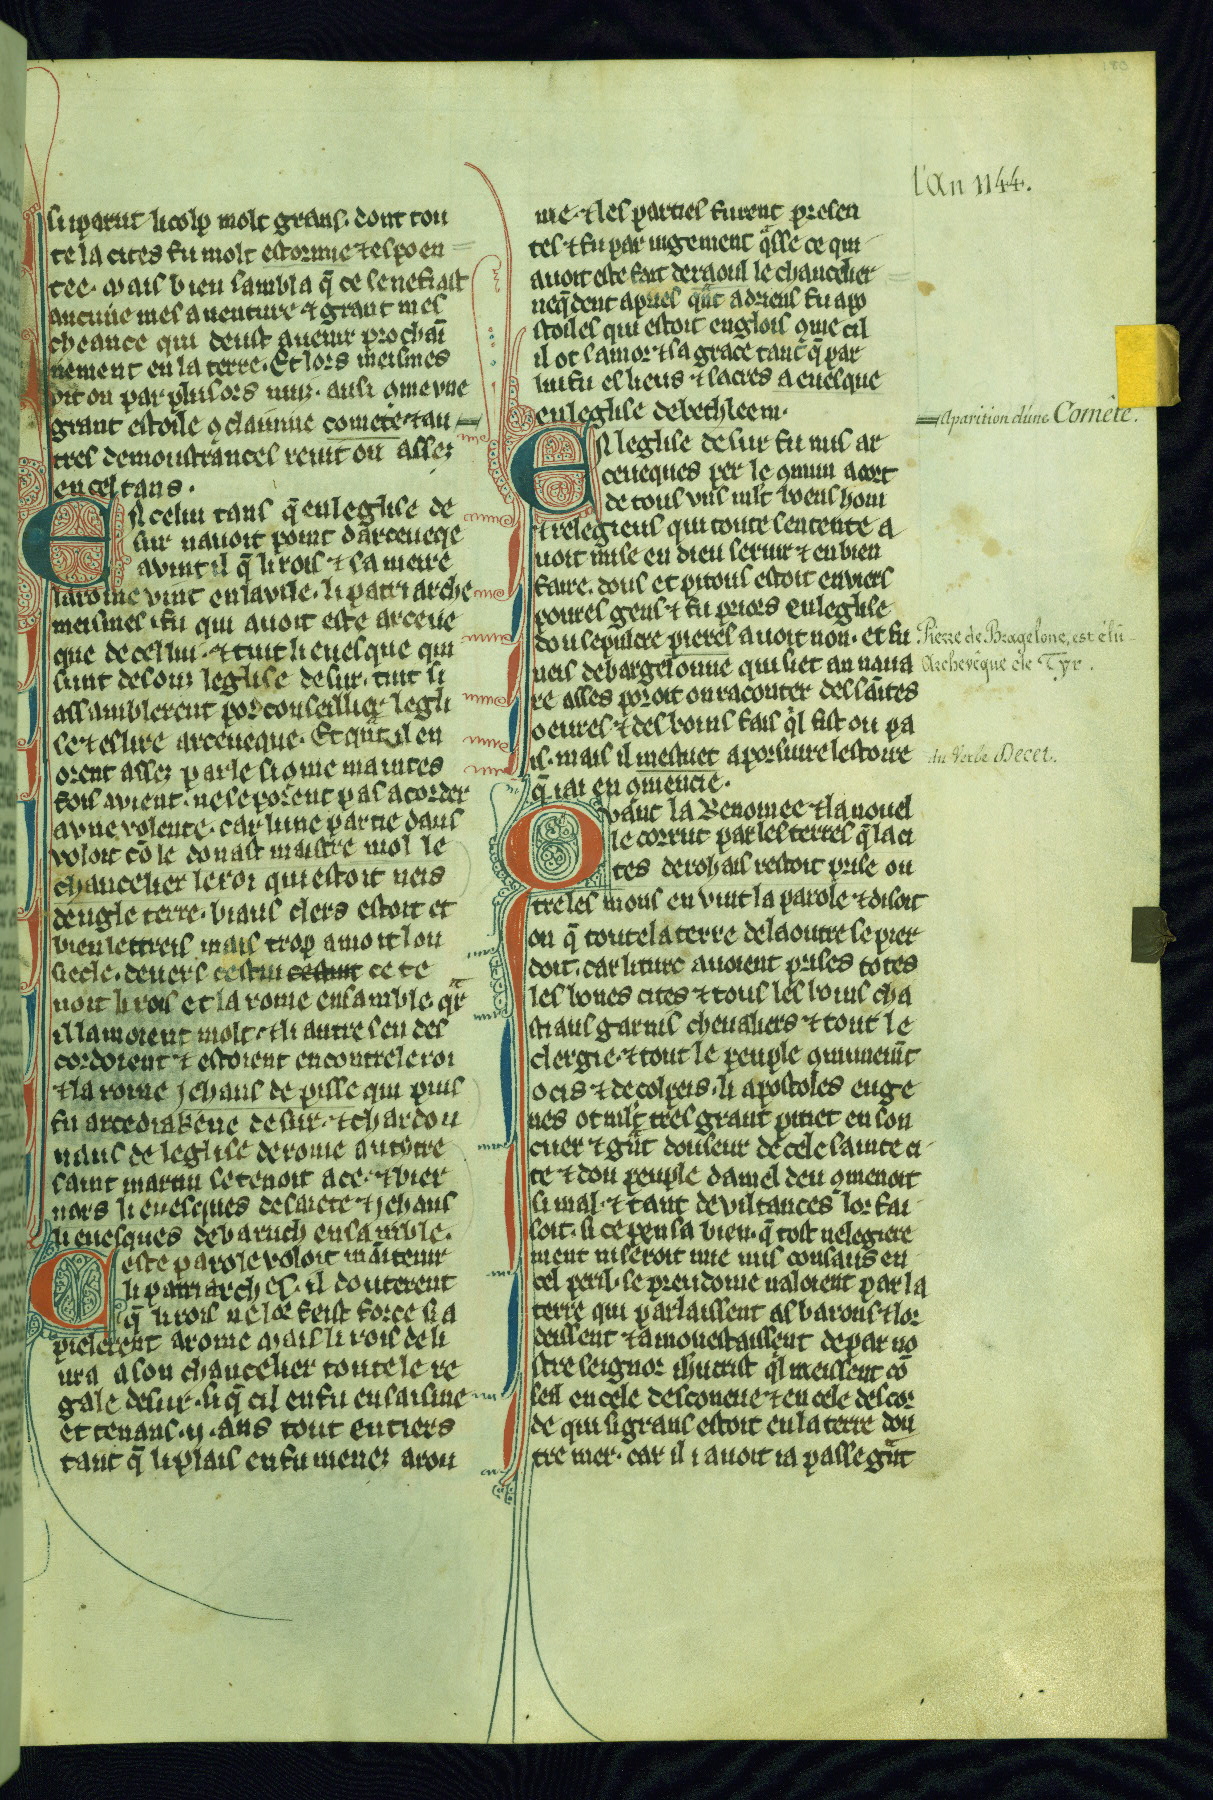 l'An 1144.
si parut li colp molt grans. dont tou
te la cites fu molt estormie ⁊ espoen
tee. Mais bien sambla q̄ ce senefiast
aucune mesaventure ⁊ grant mes
cheance qui deust avenir prochai
nement en la terre. Et lors meismes
vit on par plusors nuis. ausi ꝯme vne
grant estoile ꝯ claimme comete ⁊ au
tres demoustrances revit on assez
en cel tans.
En celui tans q̄ en leglise de
sur navoit point darceveqe
avint il q̄ li rois ⁊ sa meire
la roine vint en la vile. li patriarche
meismes i fu qui avoit este arceve
que de cel liu. ⁊ tuit li evesque qui
sunt desouz leglise de sur. tuit si
assamblerent por conseillier legli
se ⁊ eslire arceveque. Et q̄nt il en
orent assez parle si ꝯme maintes
fois avient. ne se porent pas acorder
a vne volente. car lune partie dans
voloit cō le donast maistre raol le
chancelier le roi qui estoit neis
dengle terre. biaus clers estoit et
bien lettreis mais trop amoit lou
siecle. devers cestui cestui ce te
noit li rois et la roine ensamble q̄r
il lamoient molt. ⁊ li autre sen des
cordoient ⁊ estoient encontre le roi
⁊ la roine jehans de pisse qui puis
fu arcediakene de sur. ⁊ chardou
naus de leglise de rome au tytre
saint martin se tenoit a ce. ⁊ bier
nars li evesques de saiete ⁊ jehans
li evesques de baruch ensamble.
Ceste parole voloit maitenir
li patriarches. il douterent
q̄ li rois ne lor feist force si a
pielerent a rome Mais li rois deli
vra a son chancelier toute le re
gale de sur. si q̄ cil en fu en saisine
et tenans .ij. ans tout entiers
tant q̄ li plais en fu menez a rou
me. ⁊ les parties furent presen
tes ⁊ fu par iugement q̄sse ce qui
avoit este fait de raoul le chancelier
neq̄dent apries q̄nt adriens fu apo
stoiles qui estoit englois ꝯme cil
il ot samor ⁊ sa grace tant q̄ par
lui fu eslieus ⁊ sacres a evesque
en leglise de bethleem.
En leglise de sur fu mis ar
ceveques per le ꝯmun acort
de tous vns mlt boens hom
⁊ relegieus qui toute sentente a
voit mise en dieu servir ⁊ en bien
faire. dous et pitous estoit enviers
poures gens ⁊ fu priors en leglise
dou sepulcre pieres avoit non. et fu
neis de bargelonne qui siet an nava
re asses poroit on raconter des sātes
oevres ⁊ des bouns fais q̄l fist ou pa
is. mais il mestuet a porsuire lestoire
q̄ iai en ꝯmencie.
Qvant la Renomee ⁊ la nouel
le corrut par les terres q̄ la ci
tes de rohais restoit prise ou
tre les mons en vint la parole ⁊ disoit
on q̄ toute la terre de la outre se pier
doit. car li turc avoient prises totes
les bones cites ⁊ tous les bouns cha
stiaus garnis chevaliers ⁊ tout le
clergie. ⁊ tout le peuple ꝯmunemt
ocis ⁊ decolpeis. li apostoles euge
nes ot mlt tres grant pitiet en son
cuer ⁊ ḡnt douleur de cele sainte ci
te ⁊ dou peuple damel deu ꝯmenoit
si mal. ⁊ tant de viltances lor fai
soit. si ce pensa bien. q̄ tost ne legiere
ment ni seroit mie mis consaus en
cel peril. se preudome naloient par la
terre qui parlaissent as barons ⁊ lor
deissent ⁊ amonestaissent de par no
stre seignor ihucrist q̄l meissent cō
seil en cele desconeue ⁊ en cele descor
de qui si grans estoit en la terre dou
tre mer. car il i avoit ia passe ḡnt
Aparition d'une Comête.
Pierre de Bragelone, est élu
Archevêque de Tyr.
au Verbe Decet.